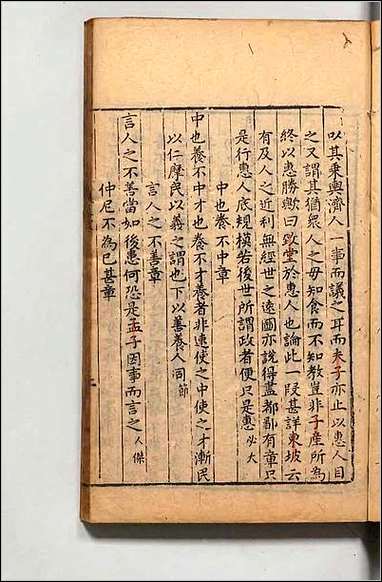 以其乘輿濟人一事而議之耳而夫子亦止以惠人目
之又謂其猶衆人之母知食而不知教豈非子產所爲
終以惠勝歟曰致堂於惠人也論此一段甚詳東坡云
有及人之近利無經世之遠圖亦說得盡都鄙有章只
是行惠人底規模若後世所謂政者便只是惠必大
中也養不中章
中也養不中才也養不才養者非速使之中使之才漸民
以仁摩民以義之謂也下以善養人同節
言人之不善章
言人之不善當如後患何恐是孟子因事而言之人傑
仲尼不為已甚章